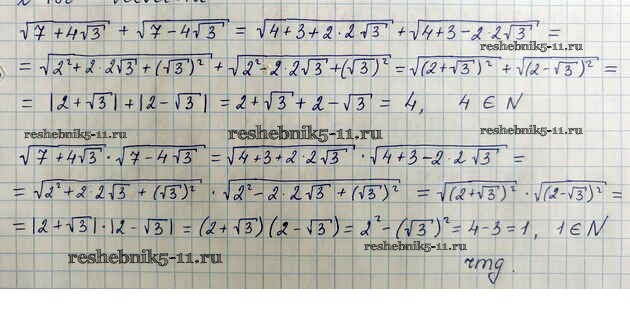 √(7+4√3) + √(7-4√3) = √(4+3+2·2√3) + √(4+3-2·2√3) =
reshebnik5-11.ru
= √(2²+2·2√3+(√3)²) + √(2²-2·2√3+(√3)²) = √((2+√3)²) + √((2-√3)²) =
= |2+√3|+|2-√3| = 2+√3+2-√3 = 4, 4 ∈ N
reshebnik5-11.ru reshebnik5-11.ru reshebnik5-11.ru
√(7+4√3) · √(7-4√3) = √(4+3+2·2√3) · √(4+3-2·2√3) =
= √(2²+2·2√3+(√3)²) · √(2²-2·2√3+(√3)²) = √((2+√3)²) · √((2-√3)²) =
= |2+√3|·|2-√3| = (2+√3)(2-√3) = 2²-(√3)² = 4-3=1, 1 ∈ N
reshebnik5-11.ru
reshebnik5-11.ru
чтд.